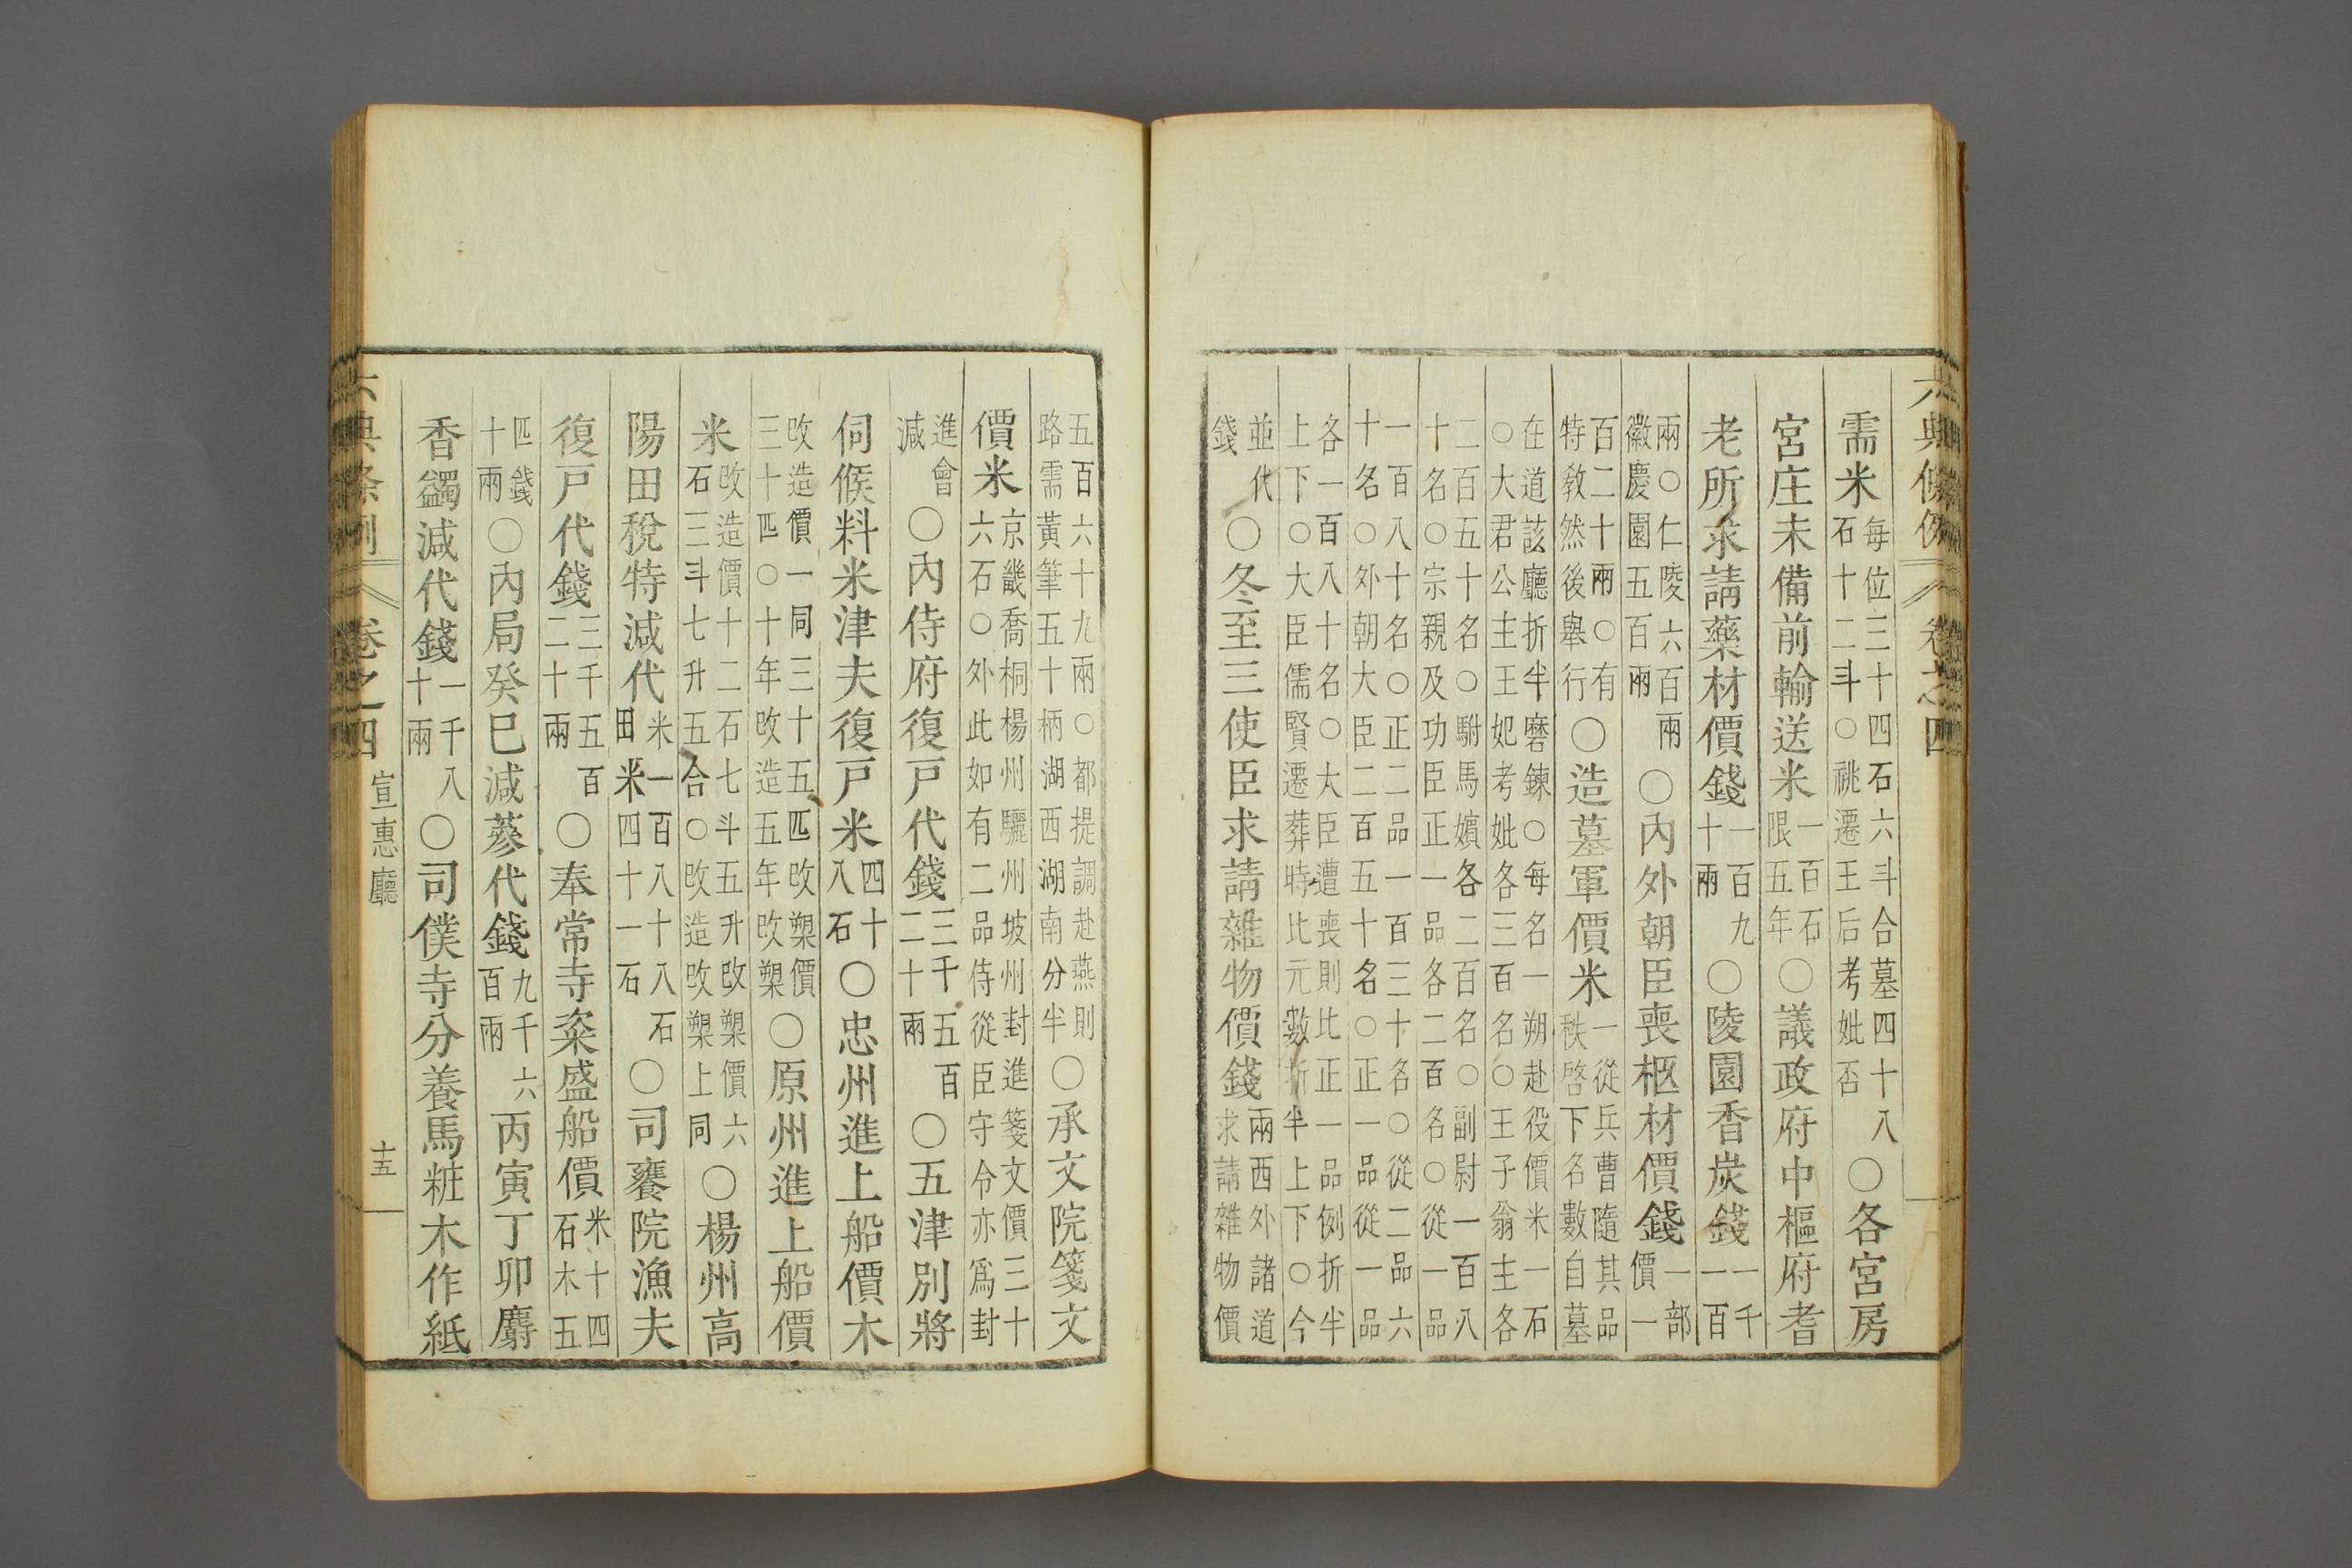 六典條例 卷之四
需米每位三十四石六斗合墓四十八石十二斗○祧遷王后考妣否○各宮房
宮庄未備前輸送米一百石限五年○議政府中樞府耆
老所求請藥材價錢一百九十兩○陵園香炭錢一千一百
兩○仁陵六百兩徽慶園五百兩○內外朝臣喪柩材價錢一部價一
百二十兩○有特敎然後舉行○造墓軍價米一從兵曹隨其品秩啓下名數自墓
在道該廳折半磨鍊○每名一朔赴役價米一石○大君公主王妃考妣各三百名○王子翁主各
二百五十名○駙馬嬪各二百名○副尉一百八十名○宗親及功臣正一品各二百名○從一品
一百八十名○正二品一百三十名○從二品六十名○外朝大臣二百五十名○正一品從一品
各一百八十名○大臣遭喪則比正一品例折半上下○大臣儒賢遷葬時比元數折半上下○今
並代錢○冬至三使臣求請雜物價錢兩西外諸道求請雜物價
五百六十九兩○都提調赴燕則路需黃筆五十柄湖西湖南分半○承文院箋文
價米京畿喬桐楊州驪州坡州封進箋文價三十六石○外此如有二品侍從臣守令亦爲封
進會減○內侍府復戶代錢三千五百二十兩○五津別將
伺候料米津夫復戶米四十八石○忠州進上船價木
改造價一同三十五匹改槊價三十匹○十年改造五年改槊○原州進上船價
米改造價十二石七斗五升改槊價六石三斗七升五合○改造改槊上同○楊州高
陽田稅特減代米一百八十八石田米四十一石○司饔院漁夫
復戶代錢三千五百二十兩○奉常寺粢盛船價米十四石木五
匹錢十兩○內局癸巳減蔘代錢九千六百兩丙寅丁卯麝
香蠲減代錢一千八十兩○司僕寺分養馬粧木作紙
六典條例 卷之四 宣惠廳 十五